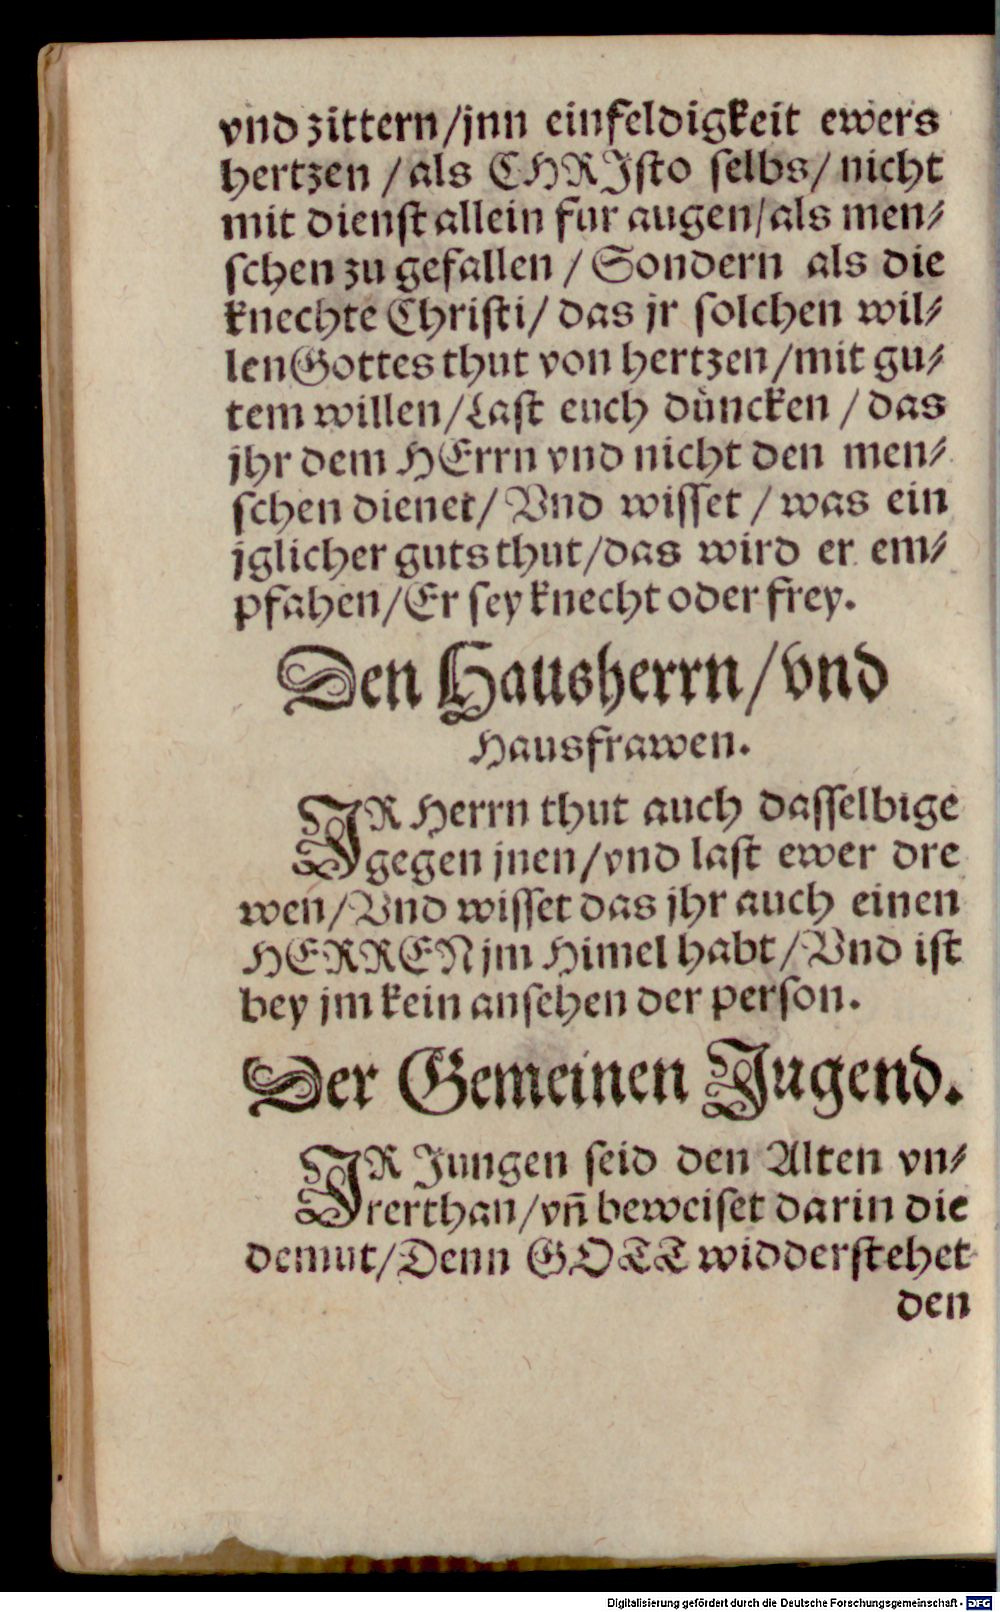 vnd zittern/jnn einfeldigkeit ewers
hertzen /als CHRJsto selbs/ nicht
mit dienst allein fur augen/als men⸗
schen zu gefallen / Sondern als die
knechte Christi/ das jr solchen wil⸗
len Gottes thut von hertzen /mit gu⸗
tem willen/Last euch düncken / das
jhr dem HErrn vnd nicht den men⸗
schen dienet/ Vnd wisset / was ein
jglicher guts thut/das wird er em⸗
pfahen/Er sey knecht oder frey.
Den Hausherrn/vnd
Hausfrawen.
JR Herrn thut auch dasselbige
gegen jnen/vnd last ewer dre
wen/Vnd wisset das jhr auch einen
HERREN jm Himel habt/Vnd ist
bey jm kein ansehen der person.
Der Gemeinen Jugend.
JR Jungen seid den Alten vn⸗
rerthan/vn̄ beweiset darin die
demut/Denn GOTT widderstehet
den
Digitalisierung gefördert durch die Deutsche Forschungsgemeinschaft - DFG